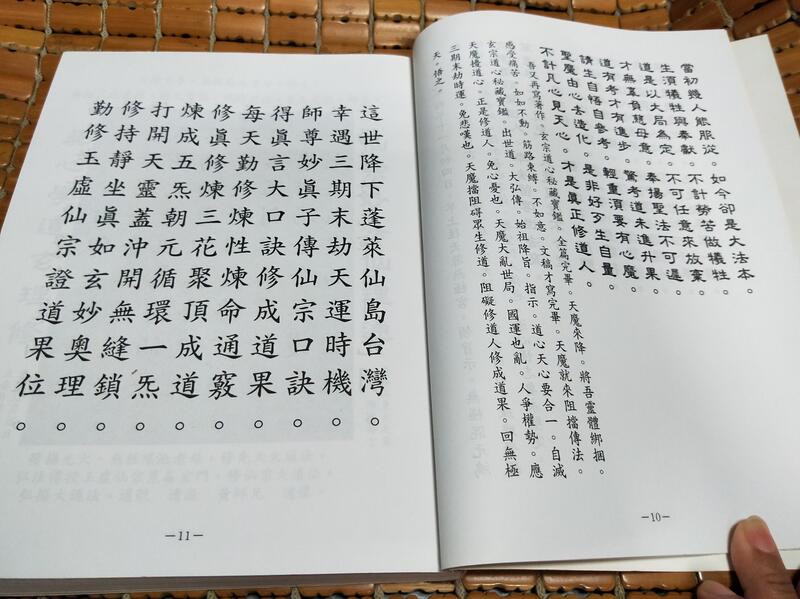 當初幾人能服從。如今卻是大法本。
生須犧牲與奉獻。不計勞苦做犧牲。
道是以大局為定。不可任意來放棄。
才無辜負慈母意。奉揚聖法不可遲。
道有考才有進步。驚考道未進升果。
請生自悟自參考。輕重須要有心魔。
聖魔由心去造化。是非好歹生自量。
不計凡心見天心。才是真正修道人。
吾又再寫著作。玄宗道心秘藏寶鑑。全篇完畢。天魔來降。將吾靈體綁捆。
感受痛苦。如如不動。筋路束縛。不如意。文稿才寫完畢。天魔就來阻擋傳法。
玄宗道心秘藏寶鑑。出世道。大弘傳。始祖降旨。指示。道心天心要合一。自滅
天魔擾道心。正是修道人。免心憂也。天魔大亂世局。國運也亂。人爭權勢。應
三期末劫時運。免悲嘆也。天魔擋阻礙眾生修道。阻礙修道人修成道果。回無極
天。悟之。
－10－
這世降下蓬萊仙島台灣。
幸遇三期末劫天運時機。
師尊妙真子傳仙宗口訣。
得真言大口訣修成道果。
每天勤修煉性煉命通竅。
修真修煉三花聚頂成道。
煉成五炁朝元循環一炁。
打開天靈蓋沖開無縫鎖。
修持靜坐真如玄妙奧理。
勤修玉虛仙宗證道果位。
－11－